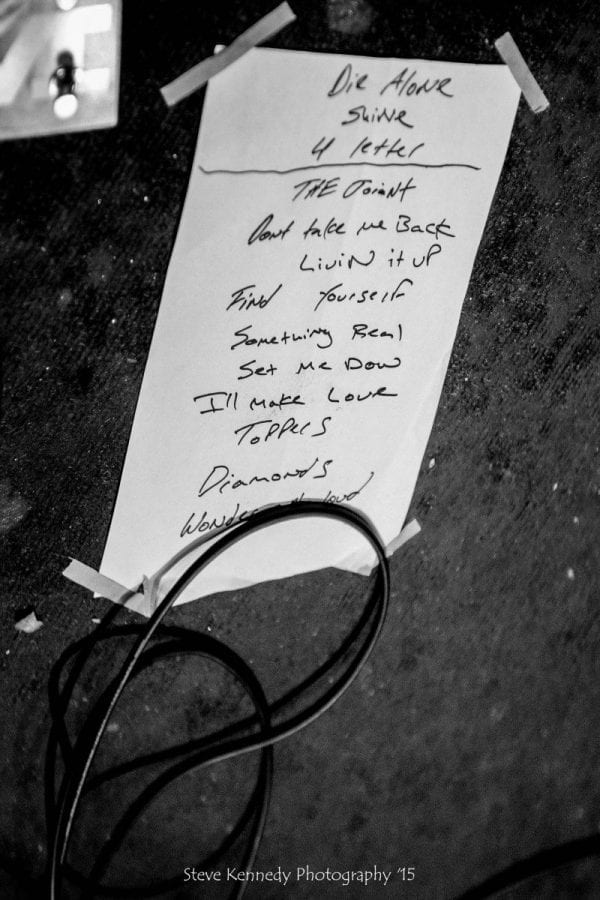 Die Alone
Shine
4 letter
THE Joint
Dont take me Back
Livin it up
Find Yourself
Something Real
Set Me Dow
I'll make Love
Toppers
Diamonds
loud
Steve Kennedy Photography '15